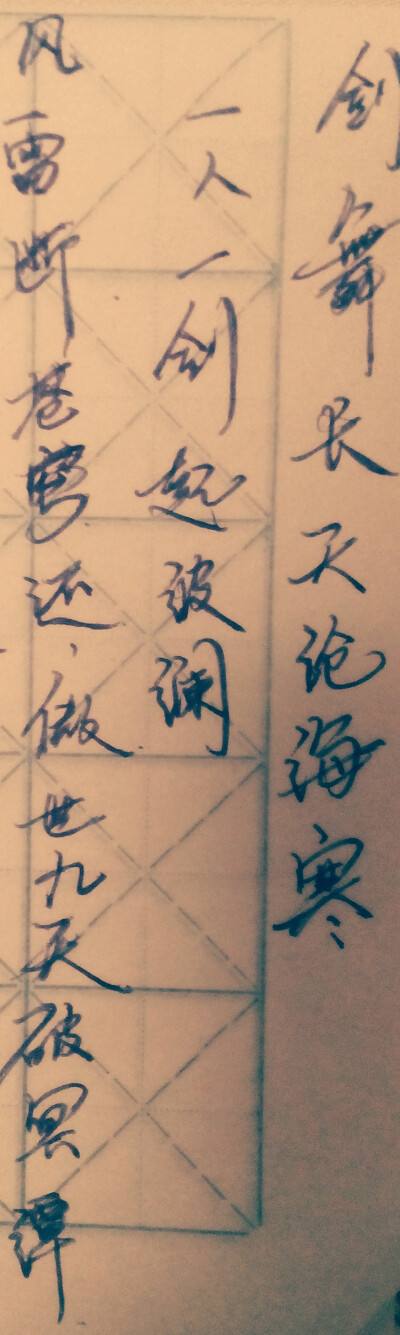 剑舞长天沧海寒
一人一剑起波澜
风雷断苍穹还,傲世九天破冥潭